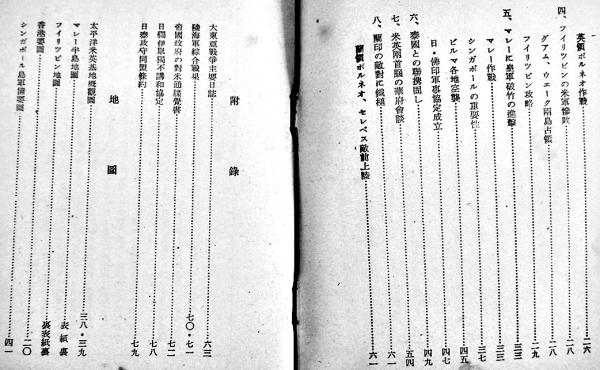 英領ボルネオ作戰……二六
四、フイリツピンの米軍慘敗……二八
グアム、ウエーク兩島占領……二八
フイリツピン攻略……二九
五、マレーに皇軍破竹の進擊……三三
マレー作戰……三三
シンガポールの重要性……三七
ビルマ各地空襲……四五
日・佛印軍事協定成立……四九
六、泰國との聯携固し……五四
七、米英兩首腦の華府會談……五一
八、蘭印の敵對に鐵槌……六一
蘭領ボルネオ、セレベス敵前上陸……六一
附錄
大東亞戰爭主要日誌……六三
陸海軍綜合戰果……七〇・七一
帝國政府の對米通牒覺書……七二
日獨伊單獨不講和協定……七八
日泰攻守同盟條約……七九
地圖
太平洋米英基地概觀圖……三八・三九
マレー半島地圖……表紙裏
フイリツピン地圖……裏表紙裏
香港要圖……二〇
シンガポール島軍備要圖……四一